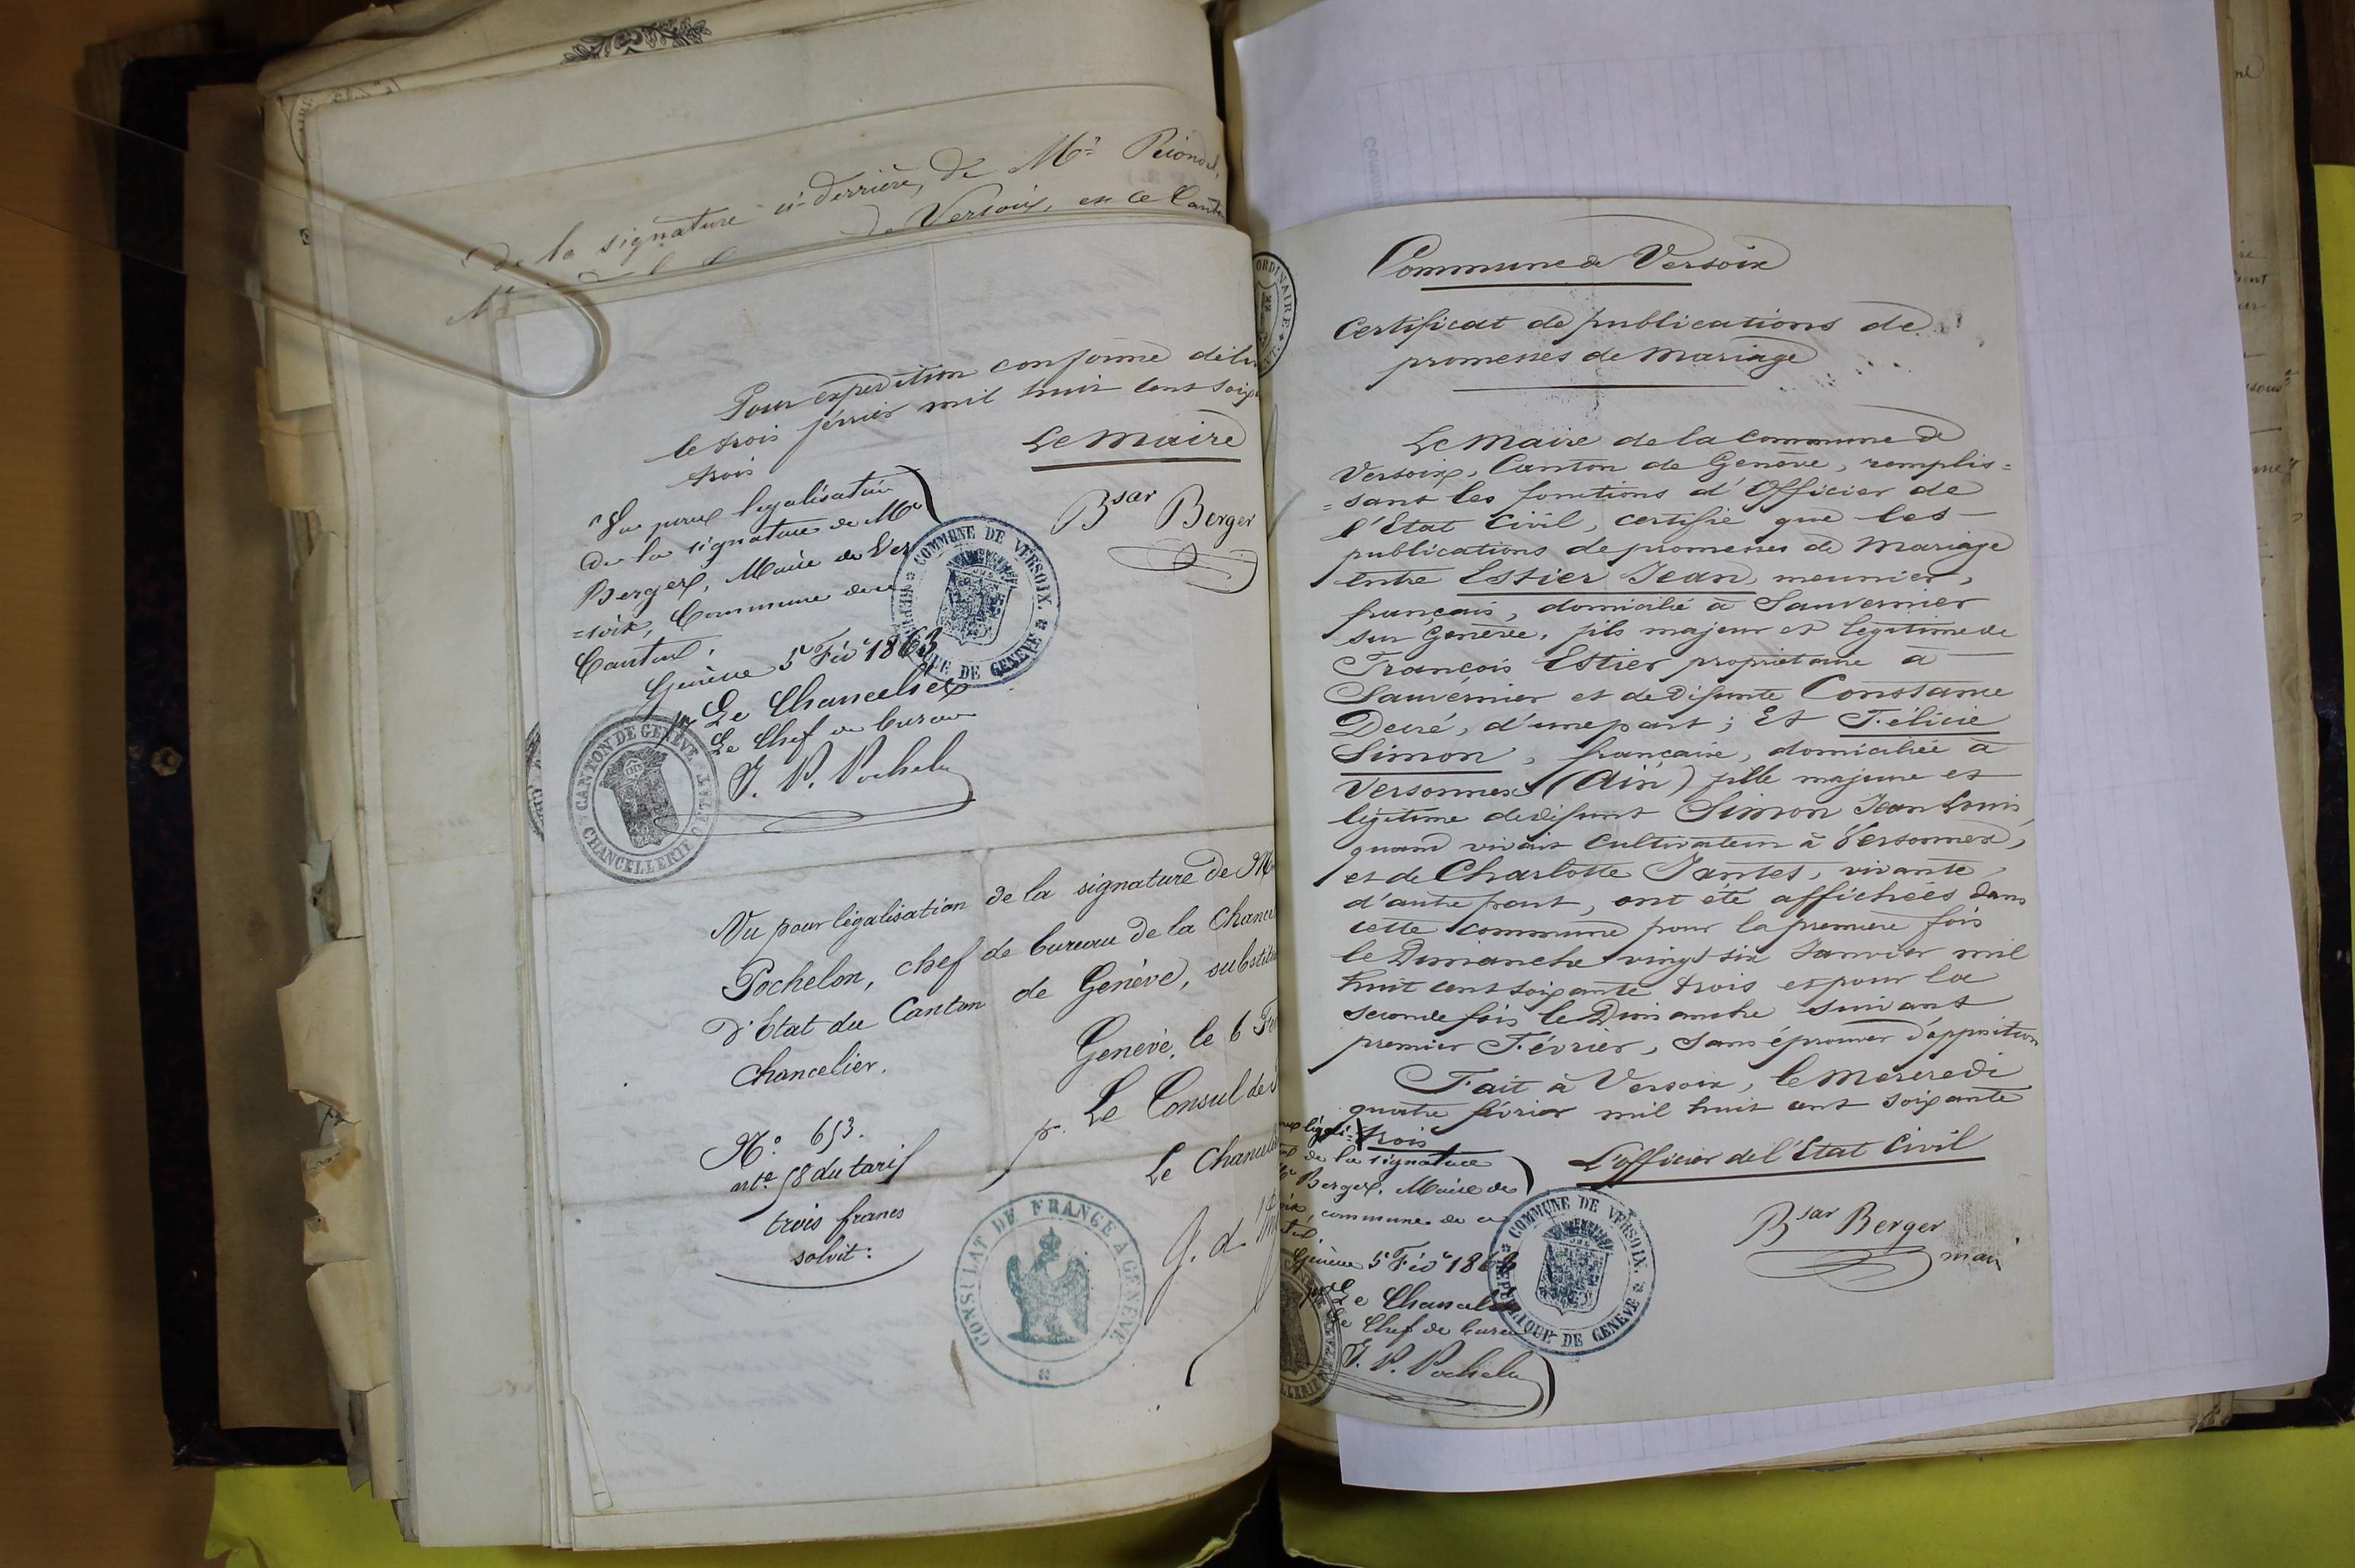 de la signature ci-derrière, de Mr
de Versoix, en ce Cant
Pour expédition conforme déliv
le trois février mil huit cent soix
trois
Le Maire
Bsar Berger
Vu pour légalisation
de la signature de Mr
Berger, Maire de Ver
=soix, Commune de ce
Canton.
Genève 5 Fév 1863
pr Le Chancelier
Le Chef de bureau
J. P. Pochelon
COMMUNE DE VERSOIX.
RÉPUBLIQUE DE GENÈVE
CANTON DE GENÈVE
CHANCELLERIE D'ETAT
Vu pour légalisation de la signature de Mr
Pochelon, chef de bureau de la Chance
d'Etat du Canton de Genève, substit
Chancelier.
Genève, le 6 Fév
p. Le Consul de
Le Chancel
No 653.
arte 58 du tarif
trois francs
solvit:
CONSULAT DE FRANCE A GENÈVE
ORDINAIRE
Commune de Versoix
Certificat de publications de
promesses de Mariage
Le Maire de la Commune de
Versoix, Canton de Genève, remplis=
=sant les fonctions d'Officier de
l'Etat Civil, certifie que les
publications de promesses de Mariage
entre Estier Jean, meunier,
français, domicilié à Sauvernier
sur Genève, fils majeur et légitime de
François Estier propriétaire à
Sauvernier et de défunte Constance
Decré, d'une part; Et Félicie
Simon, française, domiciliée à
Versonnex (Ain) fille majeure et
légitime de défunt Simon Jean Louis,
quand vivait Cultivateur à Versonnex,
et de Charlotte Jantes, vivante,
d'autre part, ont été affichées dans
cette commune pour la première fois
le Dimanche vingt six Janvier mil
huit cent soixante trois et pour la
seconde fois le Dimanche suivant
premier Février, sans éprouver d'opposition
Fait à Versoix, le Mercredi
quatre février mil huit cent soixante
trois
L'officier de l'Etat Civil
Bsar Berger
mair
pour légali=
de la signature
Mr Berger, Maire de
soix, commune de ce
Genève 5 Fév 1863
pr Le Chancelier
Le Chef de bureau
J. P. Pochelon
COMMUNE DE VERSOIX.
RÉPUBLIQUE DE GENÈVE